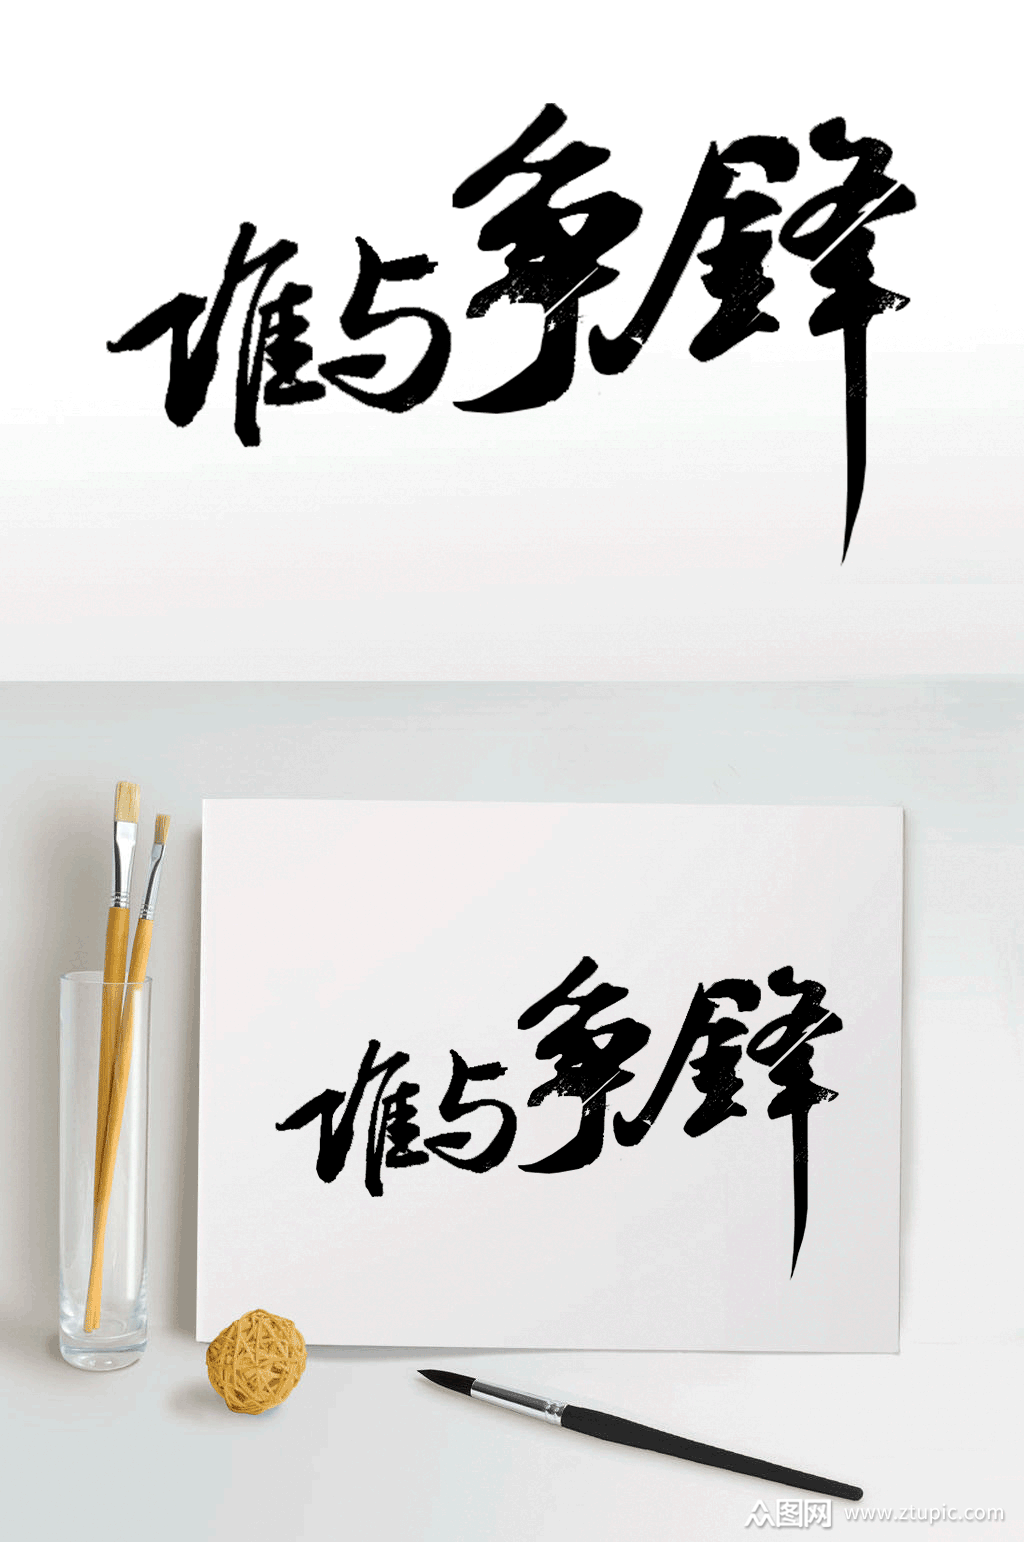 谁与争锋
谁与争锋
众图网 www.ztupic.com